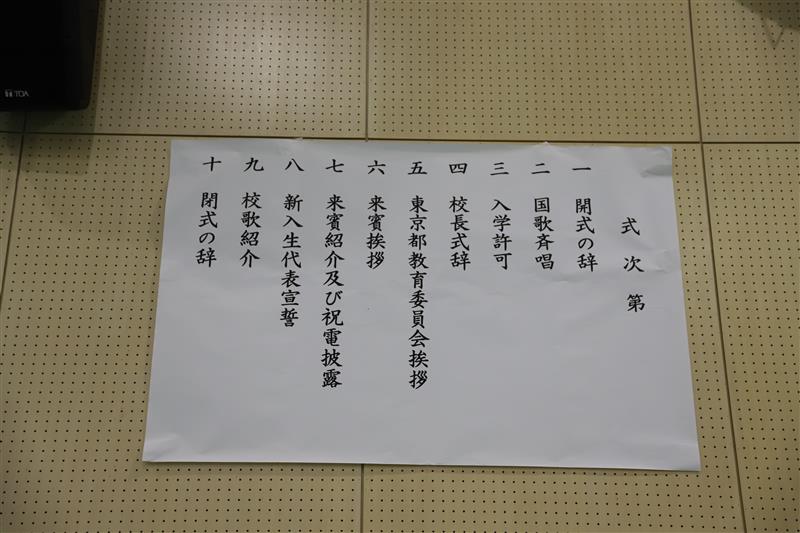 式次第
一 開式の辞
二 国歌斉唱
三 入学許可
四 校長式辞
五 東京都教育委員会挨拶
六 来賓挨拶
七 来賓紹介及び祝電披露
八 新入生代表宣誓
九 校歌紹介
十 閉式の辞
TOA